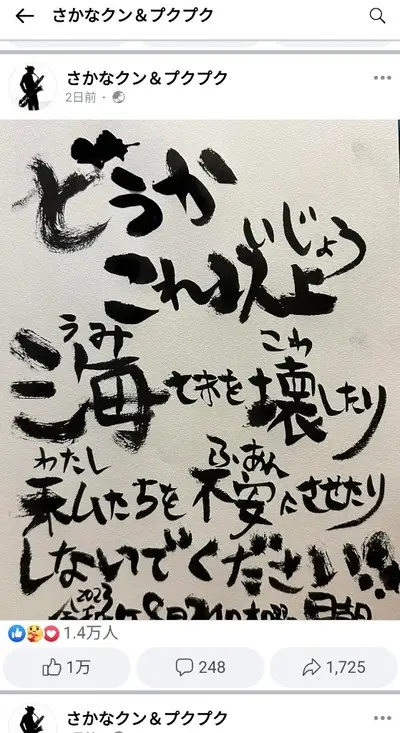 さかなクン&プクプク
さかなクン&プクプク
2日前
どうか
いじょう
これ以上
うみ こわ
海 を壊したり
わたし ふあん
私たちを不安にさせたり
しないでください!!
2023
1.4万人
1万 248 1,725
さかなクン&プクプク